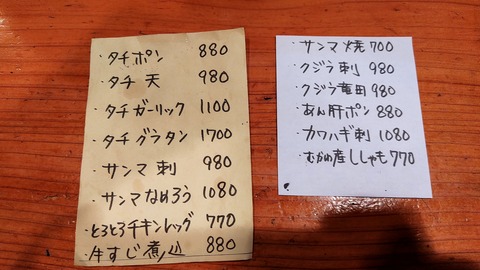 ・タチポン 880
・タチ天 980
・タチガーリック 1100
・タチグラタン 1700
・サンマ刺 980
・サンマなめろう 1080
・とろとろチキンレッグ 770
・牛すじ煮込 880
・サンマ焼 700
・クジラ刺 980
・クジラ竜田 980
・あん肝ポン 880
・カワハギ刺 1080
・むかわ産ししゃも 770